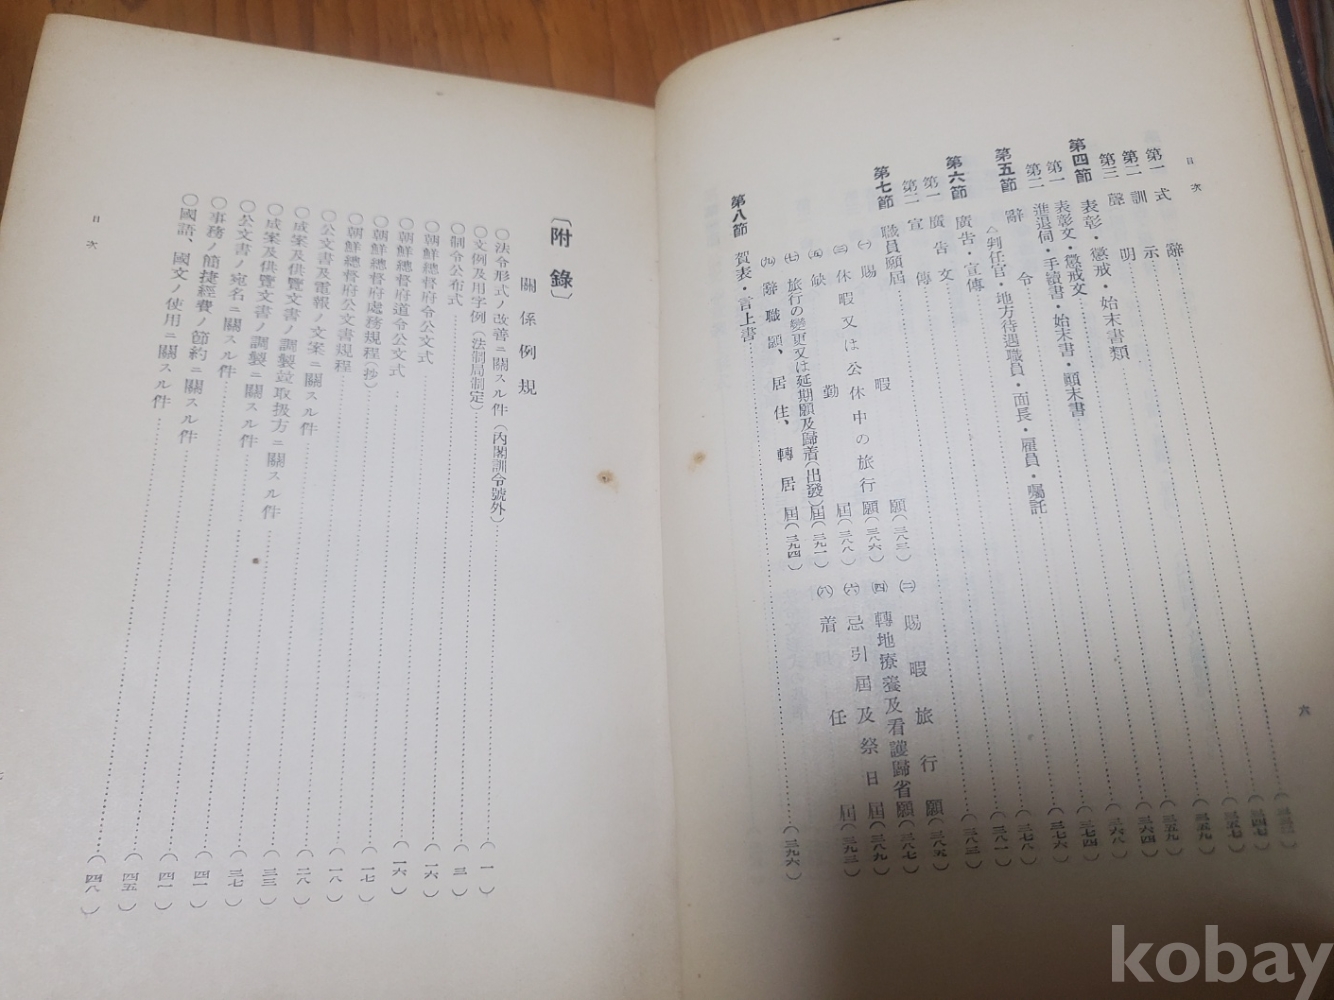 目次
六
第一 式辭
第二 訓示
第三 聲明
第四節 表彰・懲戒・始末書類
第一 表彰文・懲戒文
第二 進退伺・手續書・始末書・顚末書
第五節 辭令
△判任官・地方待遇職員・面長・雇員・囑託
第六節 廣告・宣傳
第一 廣告文
第二 宣傳
第七節 職員願屆
㈠ 賜暇願(三八三)
㈡ 賜暇旅行願(三八五)
㈢ 休暇又は公休中の旅行願(三八六)
㈣ 轉地療養及看護歸省願(三八七)
㈤ 缺勤屆(三八八)
㈥ 忌引屆及祭日屆(三八九)
㈦ 旅行の變更又は延期願及歸着(出發)屆(三九一)
㈧ 着任屆(三九三)
㈨ 辭職願、居住、轉居屆(三九四)
第八節 賀表・言上書(三九六)
〔附錄〕
關係例規
○法令形式ノ改善ニ關スル件(內閣訓令號外)(一)
○文例及用字例(法制局制定)
○制令公布式(三)
○朝鮮總督府令公文式(一六)
○朝鮮總督府道令公文式(一六)
○朝鮮總督府處務規程(抄)(一七)
○朝鮮總督府公文書規程(一八)
○公文書及電報ノ文案ニ關スル件(二八)
○成案及供覽文書ノ調製竝取扱方ニ關スル件(三三)
○成案及供覽文書ノ調製ニ關スル件(三七)
○公文書ノ宛名ニ關スル件(四一)
○事務ノ簡捷經費ノ節約ニ關スル件(四五)
○國語、國文ノ使用ニ關スル件(四八)
目次
kobay